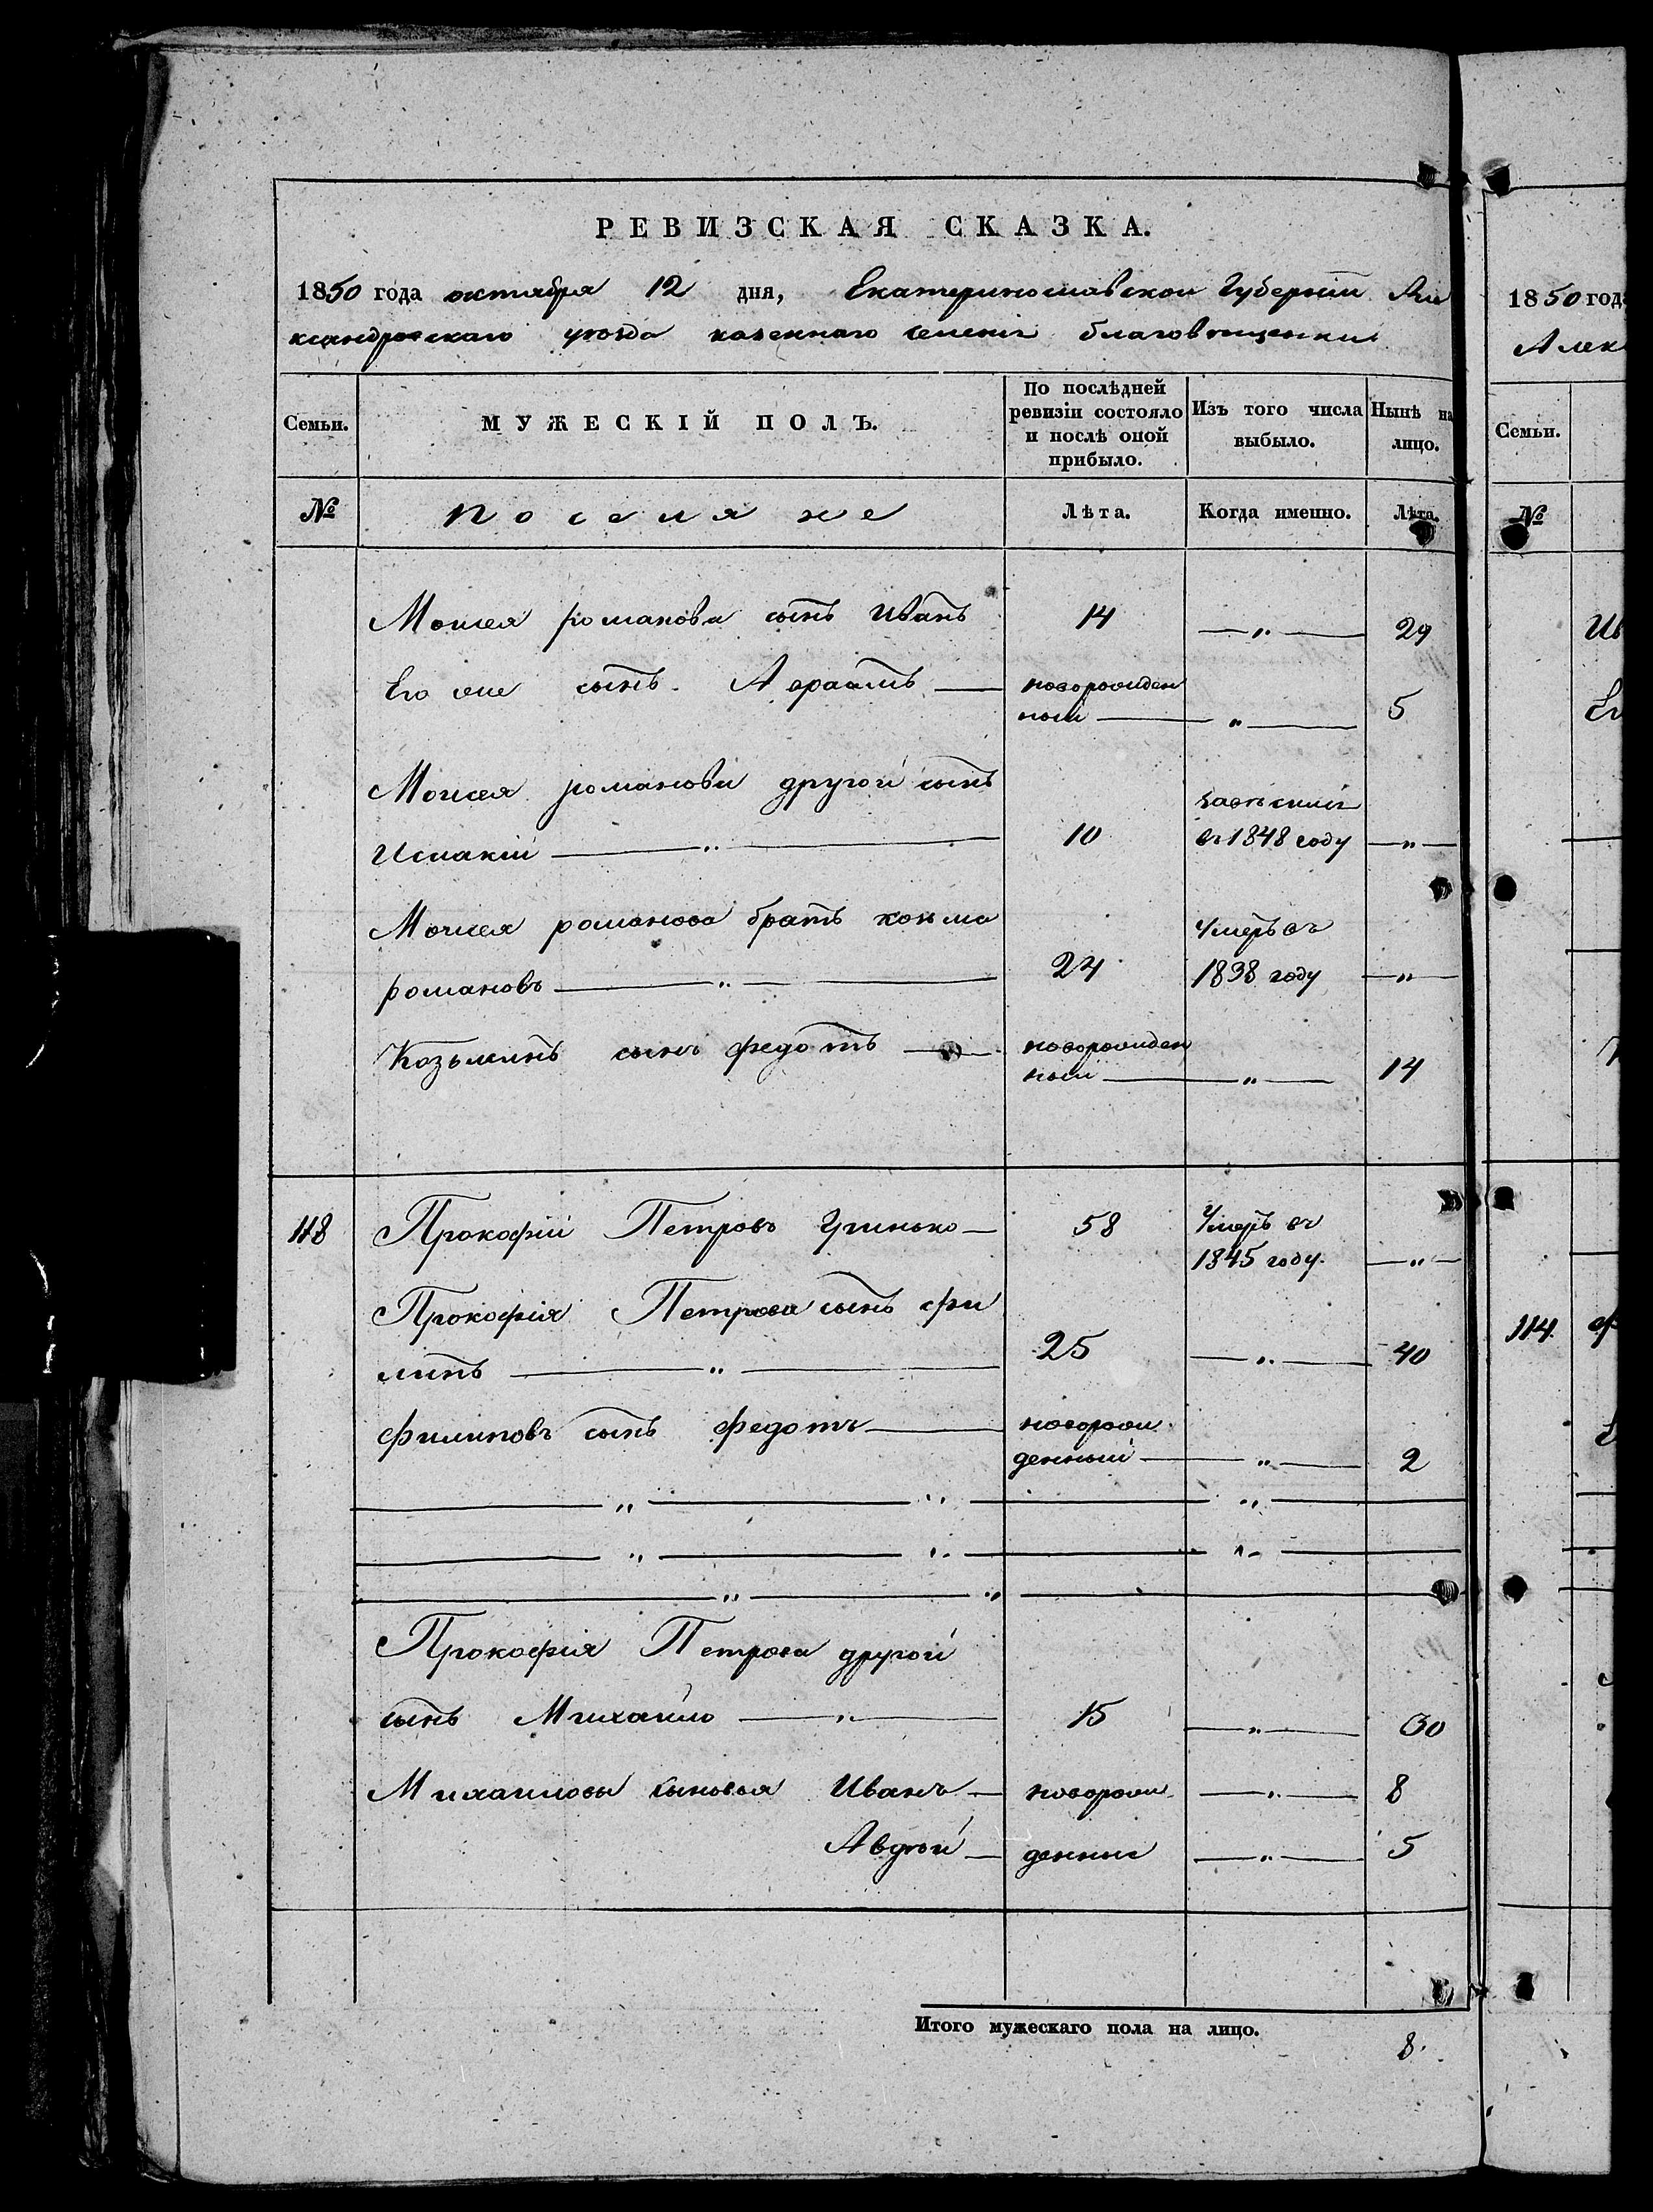 РЕВИЗСКАЯ СКАЗКА.
1850 года октября 12 дня, Екатеринославской Губернiи Але
ксандровскаго уѣзда казеннаго селенiя благовѣщенки
Семьи. МУЖЕСКIЙ ПОЛЪ. По послѣдней ревизiи состояло и послѣ оной прибыло. Изъ того числа выбыло. Нынѣ на лицо.
№ поселяне Лѣта. Когда именно. Лѣта.
Моисея романова сынъ Иванъ 14 —„— 29
Его же сынъ Авраамъ — новорожден
ный —„— 5
Моисея романова другой сынъ
Исаакiй —„— 10 въ 1848 году —„—
Моисея романова братъ козма Умеръ въ
романовъ —„— 24 1838 году —„—
Козьминъ сынъ федотъ — новорожден
ный —„— 14
118 Прокофiй Петровъ Гринько — 58 Умеръ въ
1845 году. —„—
Прокофiя Петрова сынъ фи
липъ —„— 25 —„— 40
филиповъ сынъ федотъ — новорож
денный —„— 2
Прокофiя Петрова другой
сынъ Михайло —„— 15 —„— 30
Михайловы сыновья Иванъ — новорож —„— 8
Авдѣй — денные —„— 5
Итого мужескаго пола на лицо.
8.
1850 года
Алек
Семьи.
№
Ив
Ег
114. ф